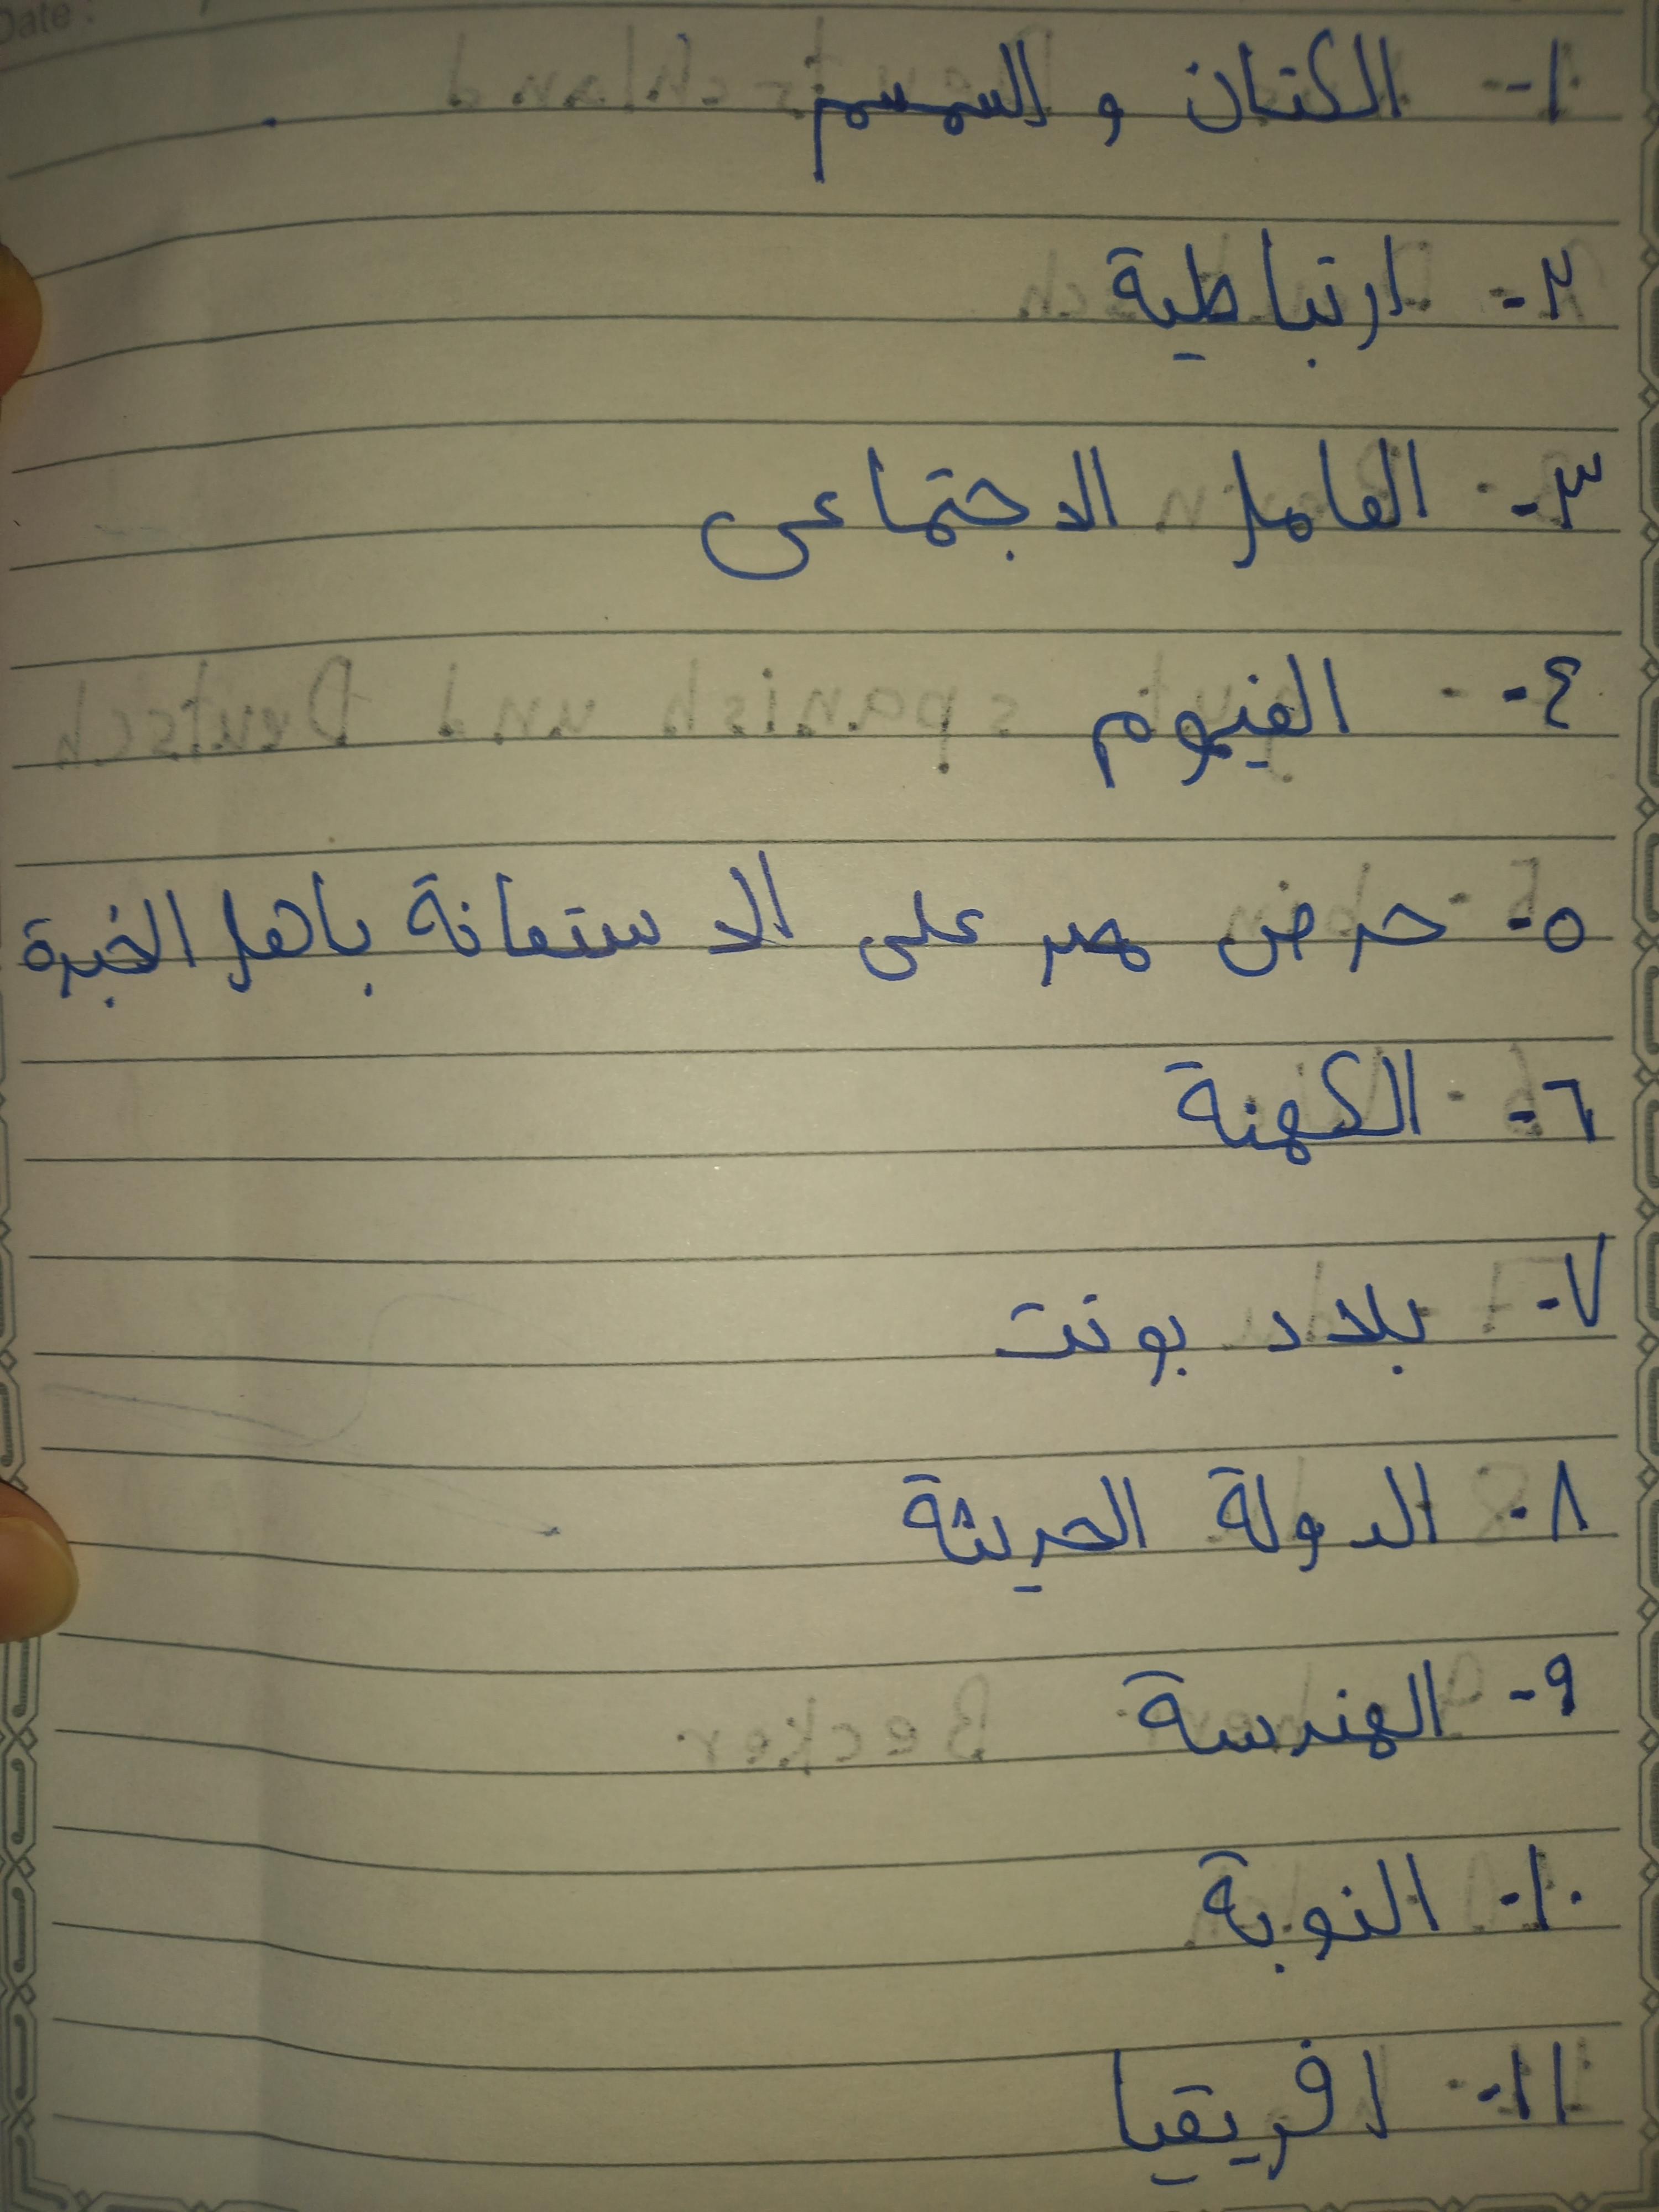 Date:
١- الكتان و السمسم
٢- ارتباطية
٣- العامل الاجتماعى
٤- الفيوم
٥- حرض مصر على الاستعانة باهل الخبرة
٦- الكهنة
٧- بلاد بونت
٨- الدولة الحديثة
٩- الهندسة
١٠- النوبة
١١- افريقيا